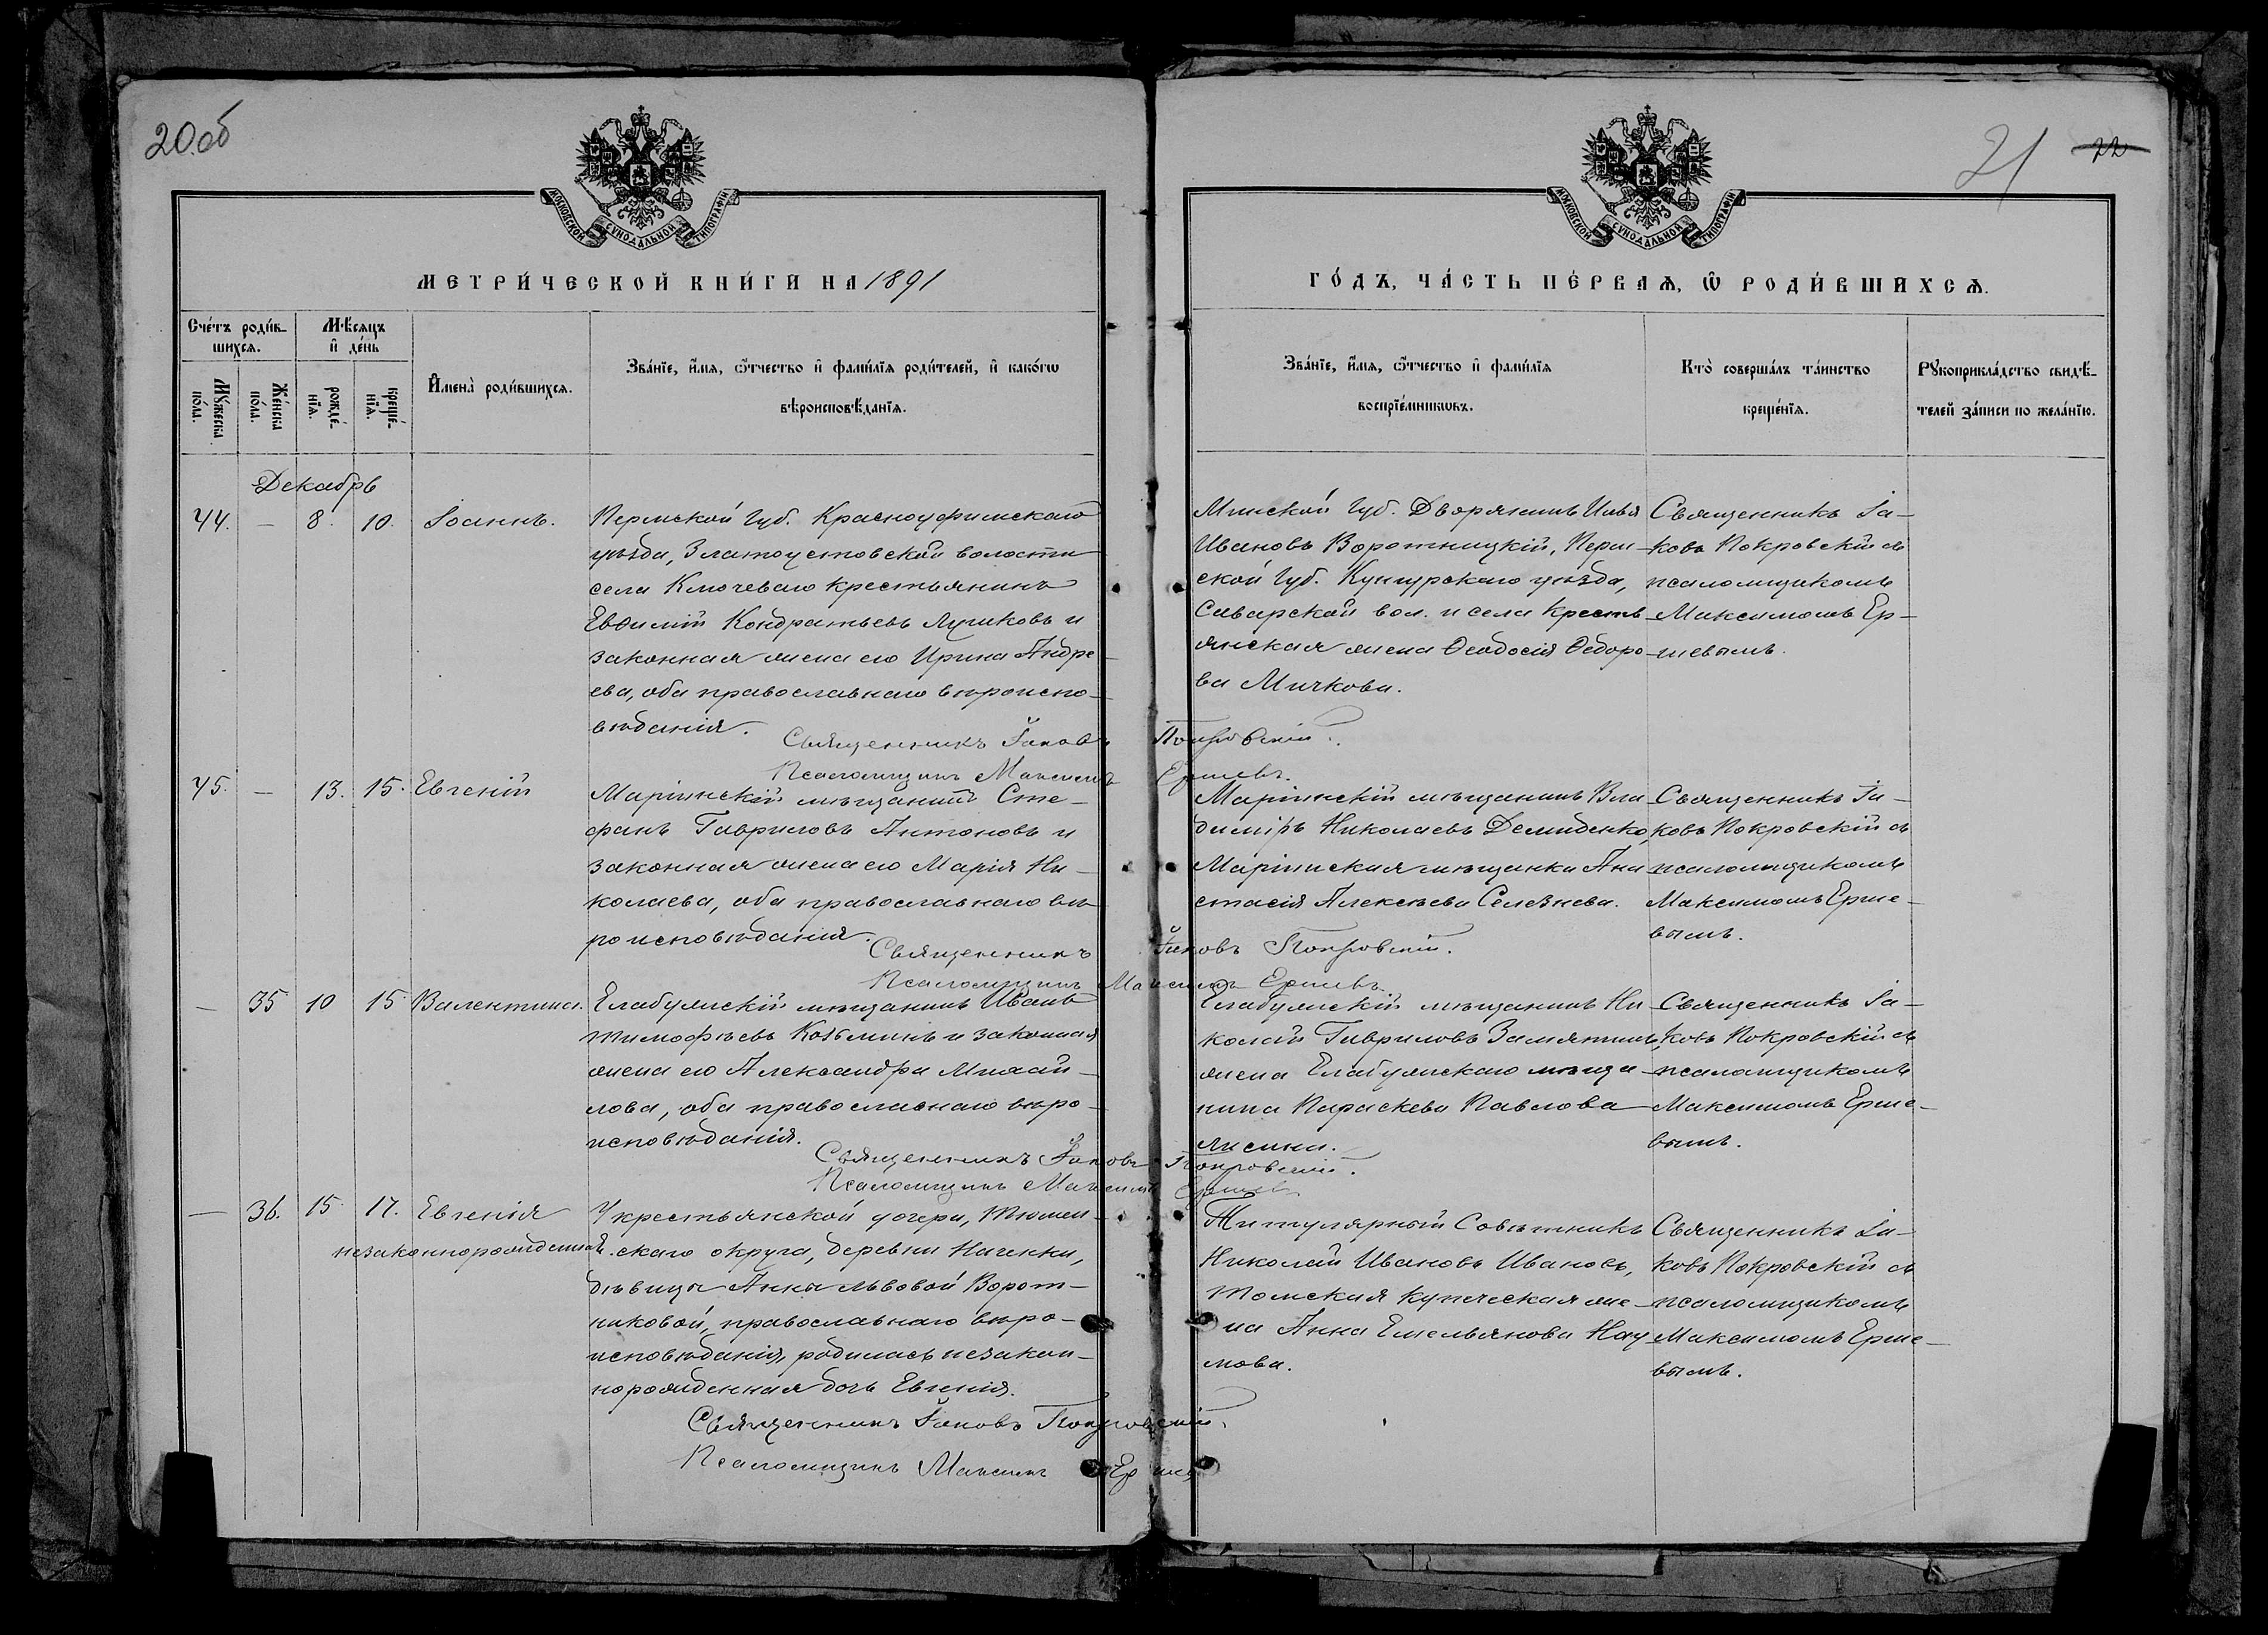 20об
МОСКОВСКОЙ СУНОДАЛЬНОЙ ТИПОГРАФІИ
МЕТРИ́ЧЕСКОЙ КНИ́ГИ НА 1891
Сче́тъ роди́в-
шихся.
Мѣ́сяцъ
и де́нь
Му́жеска
по́ла.
Же́нска
по́ла.
рожде́-
нїя.
креще́-
нїя.
Имена̀ роди́вшихся.
Зва́нїе, и́мя, ѻ҆́тчество и фами́лїя роди́телей, и како́гѡ
вѣроисповѣ́данїя.
Декабрь
44. — 8. 10. Іоаннъ.
Пермской губ. Красноуфимскаго
уѣзда, Златоустовской волости
села Ключеваго крестьянинъ
Евѳимій Кондратьевъ Лучиковъ и
законная жена его Ирина Андре-
ева, оба православнаго вѣроиспо-
вѣданія.
Священникъ Іаковъ Покровскій.
Псаломщикъ Максимъ Ершевъ.
45. — 13. 15. Евгеній
Маріинскій мѣщанинъ Сте-
фанъ Гавриловъ Антоновъ и
законная жена его Марія Ни-
колаева, оба православнаго вѣ-
роисповѣданія.
Священникъ Іаковъ Покровскій.
Псаломщикъ Максимъ Ершевъ.
— 35 10 15 Валентина.
Елабужскій мѣщанинъ Иванъ
Тимофѣевъ Козьминъ и законная
жена его Александра Михай-
лова, оба православнаго вѣро-
исповѣданія.
Священникъ Іаковъ Покровскій.
Псаломщикъ Максимъ Ершевъ
— 36. 15. 17. Евгенія
незаконнорожденная.
У крестьянской дочери, Тюмен-
скаго округа, деревни Ниченки,
дѣвицы Анны Львовой Ворот-
никовой, православнаго вѣро-
исповѣданія, родилась незакон-
норожденная дочь Евгенія.
Священникъ Іаковъ Покровскій.
Псаломщикъ Максимъ Ершевъ
21 22
МОСКОВСКОЙ СУНОДАЛЬНОЙ ТИПОГРАФІИ
ГО́ДЪ, ЧА́СТЬ ПЕ́РВАЯ, Ѡ РОДИ́ВШИХСЯ.
Зва́нїе, и́мя, ѻ҆́тчество и фами́лїя
воспрїе́мникѡвъ.
Кто̀ соверша́лъ та́инство
креще́нїя.
Рꙋкоприкла́дство свидѣ́-
телей за́писи по жела́нїю.
Минской губ. Дворянинъ Илья
Ивановъ Воротницкій, Перм-
ской губ. Кунгурскаго уѣзда,
Саварской вол. и села кресть-
янская жена Ѳеодосія Ѳедоро-
ва Мичкова.
Священникъ Іа-
ковъ Покровскій съ
псаломщикомъ
Максимомъ Ер-
шевымъ.
Маріинскій мѣщанинъ Вла-
диміръ Николаевъ Демиденко,
Маріинская мѣщанка Ана-
стасія Алексѣева Селезнева.
Священникъ Іа-
ковъ Покровскій съ
псаломщикомъ
Максимомъ Ерше-
вымъ.
Елабужскій мѣщанинъ Ни-
колай Гавриловъ Замятинъ,
жена Елабужскаго мѣща-
нина Параскева Павлова
Лисина.
Священникъ Іа-
ковъ Покровскій съ
псаломщикомъ
Максимомъ Ерше-
вымъ.
Титулярный Совѣтникъ
Николай Ивановъ Ивановъ,
Томская купеческая же-
на Анна Емельянова Нау-
мова.
Священникъ Іа-
ковъ Покровскій съ
псаломщикомъ
Максимомъ Ерше-
вымъ.